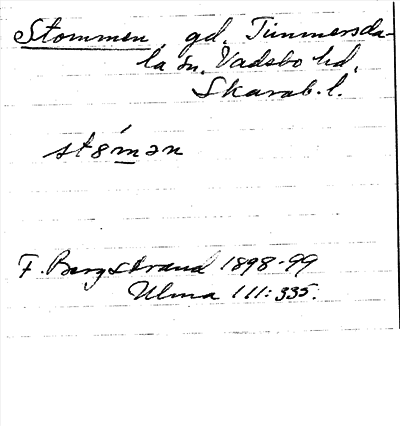 Stommen, gd. Timmersda-
la sn. Vadsbo hd.
Skarab. l.
stómən
F. Bergstrand 1898-99
Ulma 111:335.